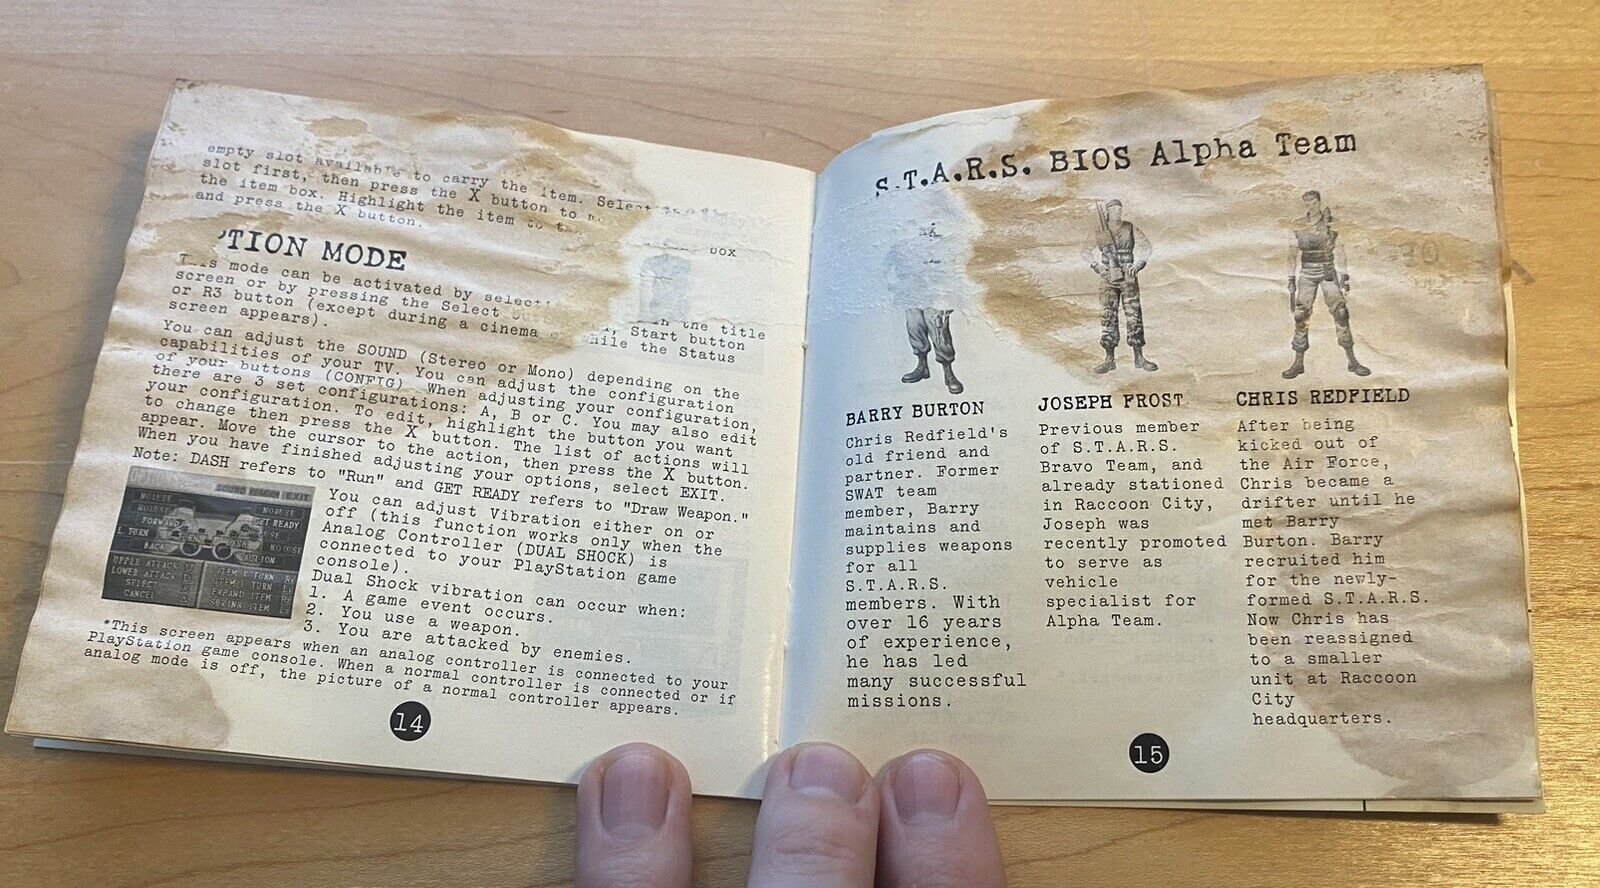 empty slot available to carry the item. Select
slot first, then press the X button to
the item box. Highlight the item to
and press the X button.
box
TION MODE
This mode can be activated by
screen or by pressing the Select
in the title
or R3 button (except during a cinema
Start button
screen appears).
while the Status
You can adjust the SOUND (Stereo or Mono) depending on the
capabilities of your TV. You can adjust the configuration
of your buttons (CONFIG). When adjusting your configuration,
there are 3 set configurations: A, B or C. You may also edit
your configuration. To edit, highlight the button you want
to change then press the X button. The list of actions will
appear. Move the cursor to the action, then press the X button.
When you have finished adjusting your options, select EXIT.
Note: DASH refers to "Run" and GET READY refers to "Draw Weapon."
EXIT
NOUSE
NOUSE
NOUSE
FORWARD
GET READY
L TURN
NOUSE
BACK
ACTION
UPPER ATTACK
LOWER ATTACK
SELECT
CANCEL
ITEM R TURN
ITEM L TURN
EXPAND ITEM
SHRINK ITEM
You can adjust Vibration either on or
off (this function works only when the
Analog Controller (DUAL SHOCK) is
connected to your PlayStation game
console).
Dual Shock vibration can occur when:
1. A game event occurs.
2. You use a weapon.
3. You are attacked by enemies.
*This screen appears when an analog controller is connected to your
PlayStation game console. When a normal controller is connected or if
analog mode is off, the picture of a normal controller appears.
14
S.T.A.R.S. BIOS Alpha Team
BARRY BURTON
Chris Redfield's
old friend and
partner. Former
SWAT team
member, Barry
maintains and
supplies weapons
for all
S.T.A.R.S.
members. With
over 16 years
of experience,
he has led
many successful
missions.
JOSEPH FROST
Previous member
of S.T.A.R.S.
Bravo Team, and
already stationed
in Raccoon City,
Joseph was
recently promoted
to serve as
vehicle
specialist for
Alpha Team.
CHRIS REDFIELD
After being
kicked out of
the Air Force,
Chris became a
drifter until he
met Barry
Burton. Barry
recruited him
for the newly-
formed S.T.A.R.S.
Now Chris has
been reassigned
to a smaller
unit at Raccoon
City
headquarters.
15